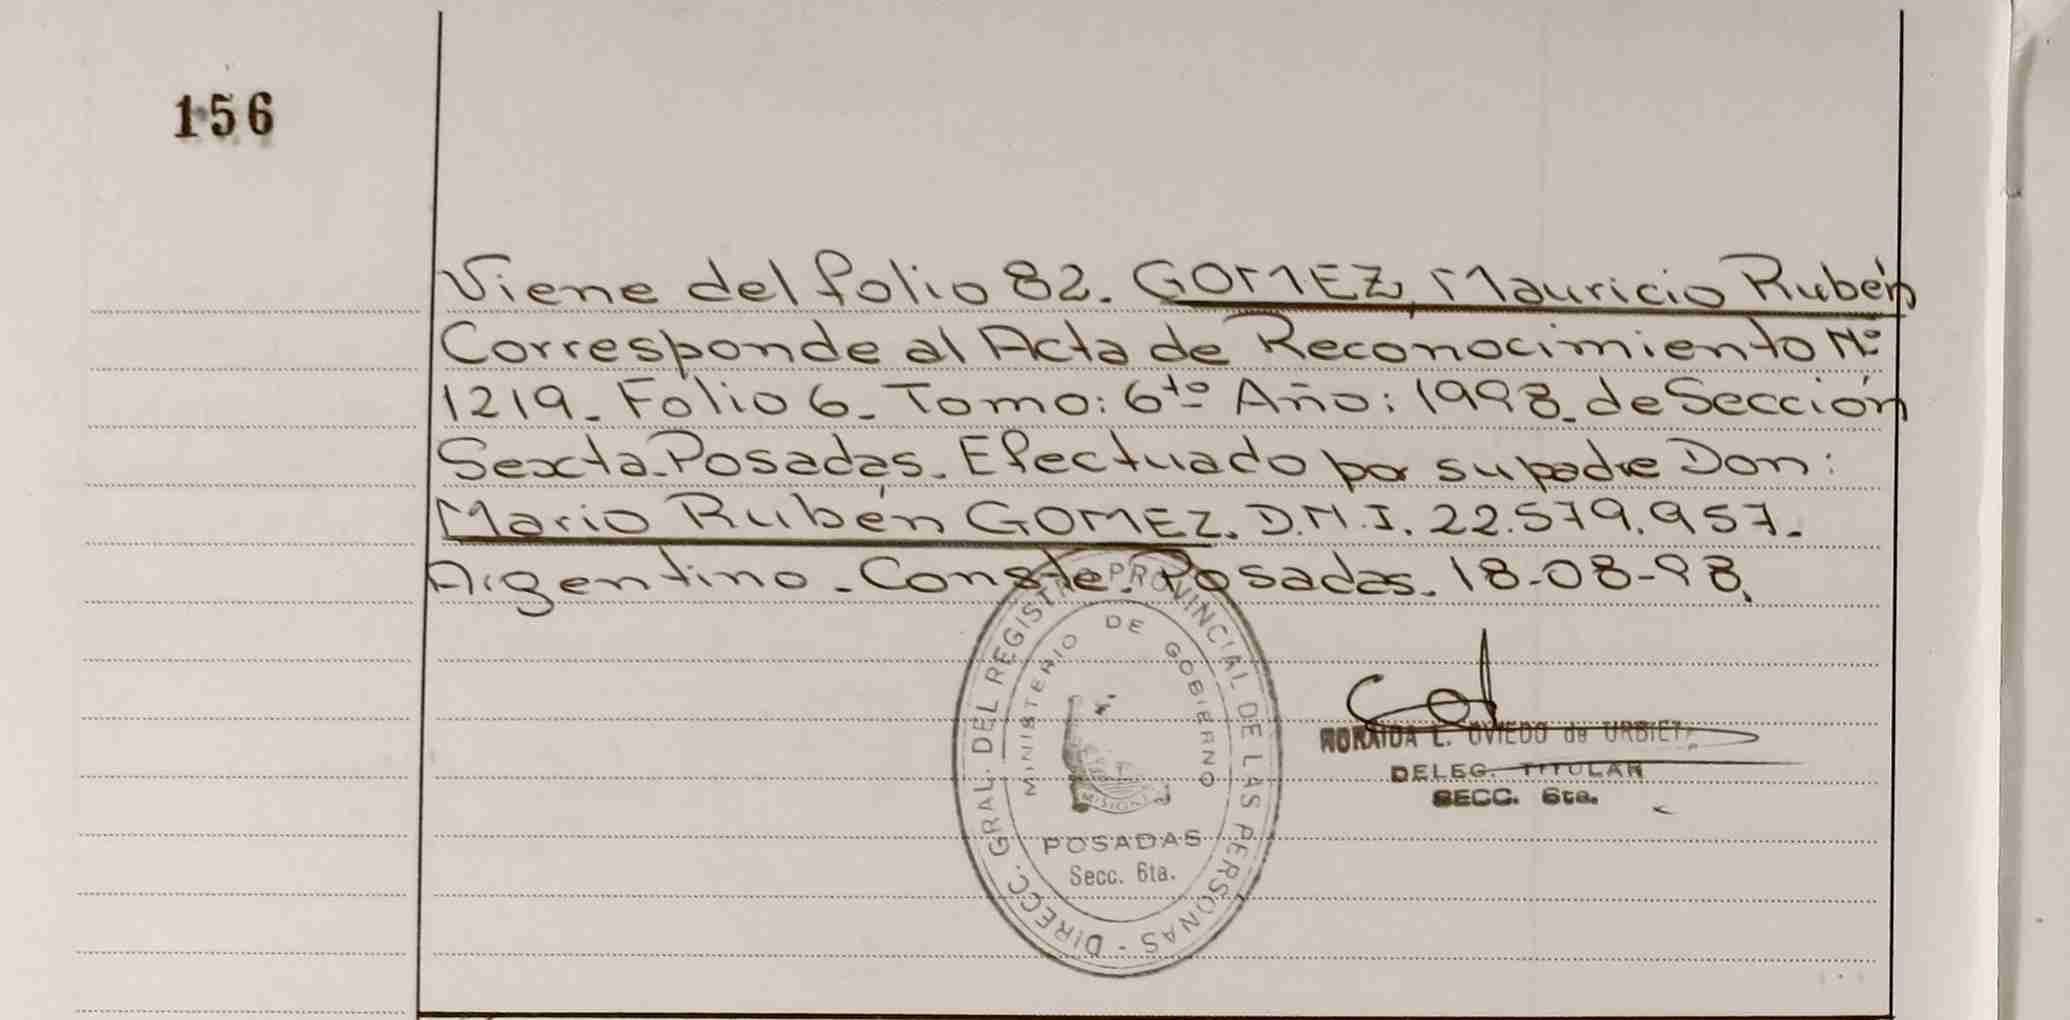 156
Viene del folio 82. GOMEZ, Mauricio Rubén
Corresponde al Acta de Reconocimiento Nº
1219. Folio 6. Tomo: 6to Año: 1998. de Sección
Sexta. Posadas. Efectuado por su padre Don:
Mario Rubén GOMEZ. D.N.I. 22.579.957.
Argentino. Conste. Posadas. 18-08-98.
DIRECC. GRAL. DEL REGISTRO PROVINCIAL DE LAS PERSONAS -
MINISTERIO DE GOBIERNO
MISIONES
POSADAS
Secc. 6ta.
L. OVIEDO de URBIETA
DELEG. TITULAR
SECC. 6ta.